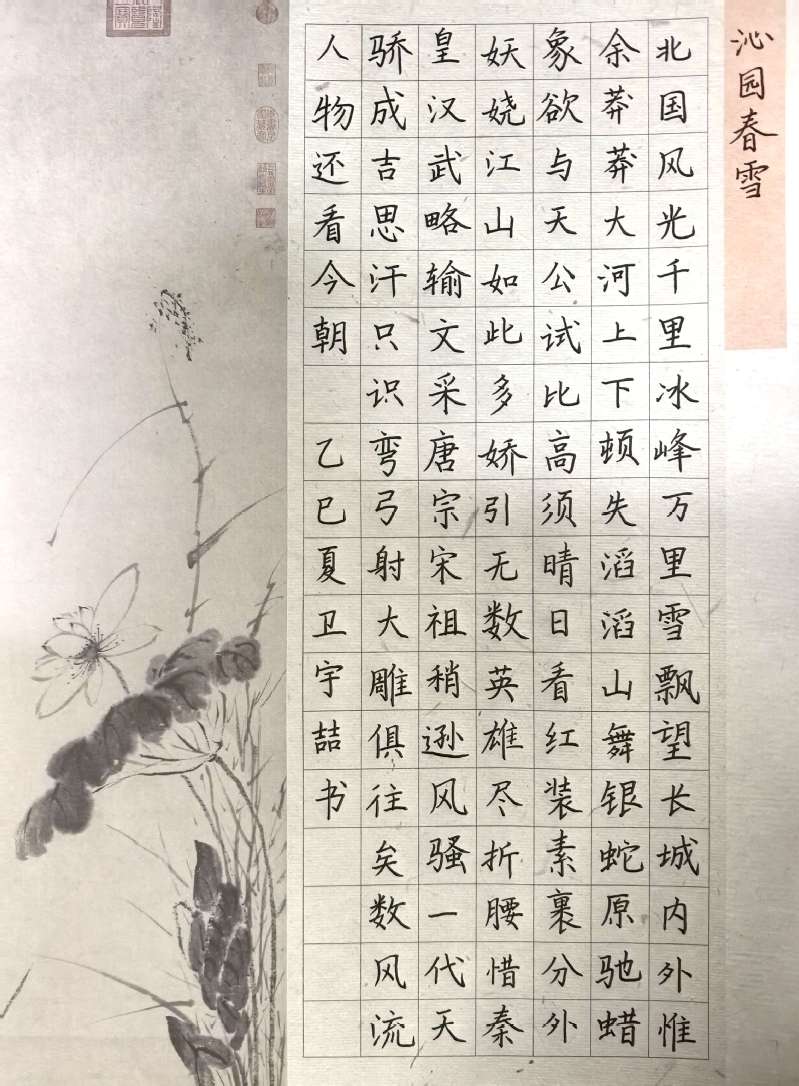 沁园春雪
北国风光千里冰峰万里雪飘望长城内外惟
余莽莽大河上下顿失滔滔山舞银蛇原驰蜡
象欲与天公试比高须晴日看红装素裹分外
妖娆江山如此多娇引无数英雄尽折腰惜秦
皇汉武略输文采唐宗宋祖稍逊风骚一代天
骄成吉思汗只识弯弓射大雕俱往矣数风流
人物还看今朝 乙巳夏卫宇喆书